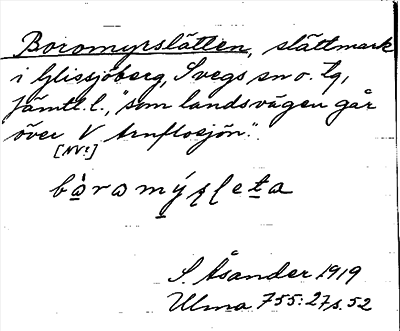 Boromyrslåtten, slåttmark
i Glissjöberg, Svegs sn o. tg,
Jämtl. l., "som landsvägen går
över V Arnflosjön".
[NV?]
bòromýrsleta
S. Åsander 1919
Ulma 755:27 s. 52